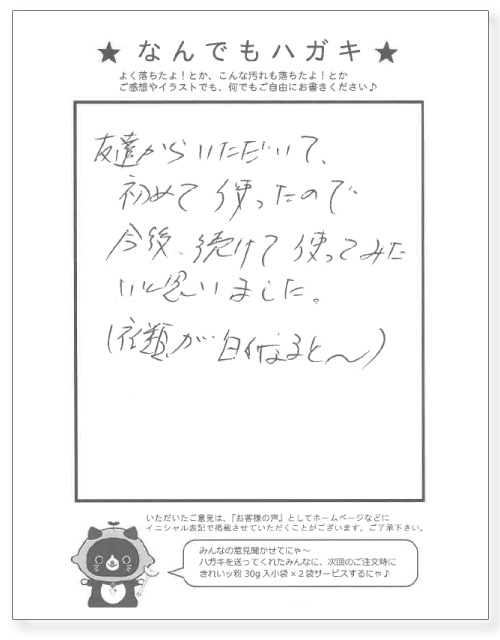 ★ なんでもハガキ ★
よく落ちたよ!とか、こんな汚れも落ちたよ!とか
ご感想やイラストでも、何でもご自由にお書きください♪
友達からいただいて、
初めて使ったので
今後、続けて使ってみた
いと思いました。
(衣類が白くなると〜)
いただいたご意見は、『お客様の声』としてホームページなどに
イニシャル表記で掲載させていただくことがございます。ご了承下さい。
みんなの意見聞かせてにゃ〜
ハガキを送ってくれたみんなに、次回のご注文時に
きれいッ粉 30g 入小袋×2袋サービスするにゃ♪